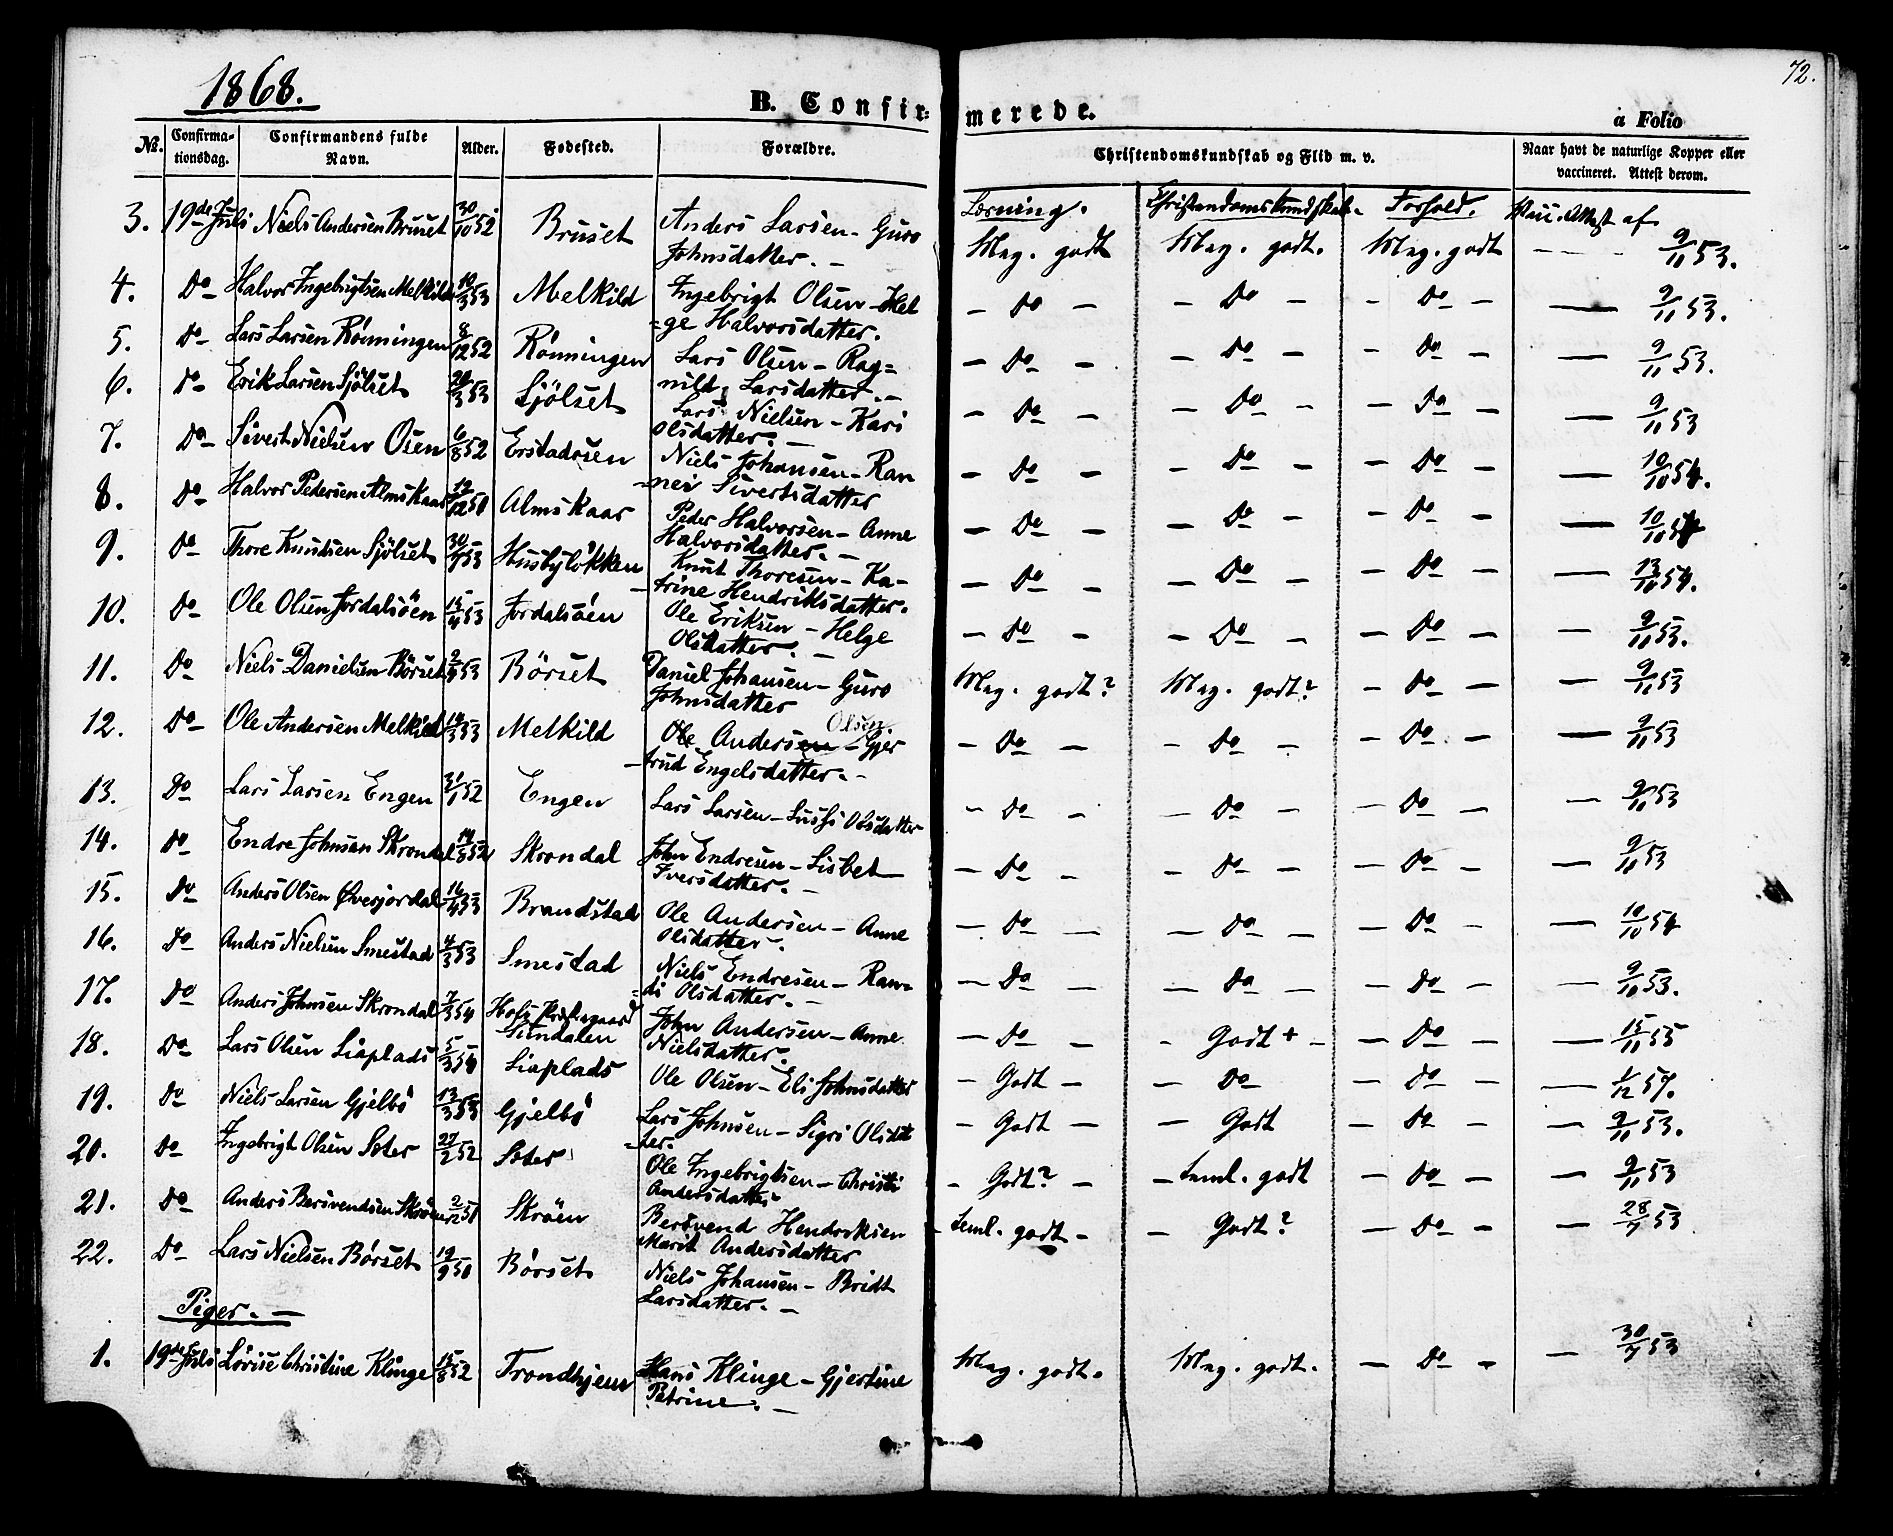 72.
1868.
B. Confirmerede.
a Folio
No. Confirmationsdag. Confirmandens fulde Navn. Alder. Fødested. Forældre. Christendomskundskab og Flid m. v. Naar havt de naturlige Kopper eller vaccineret. Attest derom.
Læsning. Christendomskundskab. Forhold. Vacc. Attest af
3. 19de Juli Niels Andersen Bruset 30/10 52 Bruset Anders Larsen - Guro Johnsdatter. - Meg. godt Meg. godt. Meg. godt - - - 9/11 53.
4. Do Halvor Ingebrigtsen Melkild 10/3 53 Melkild Ingebrigt Olsen - Helge Halvorsdatter. - Do - - Do - - Do - - 9/11 53.
5. Do Lars Larsen Rönningen 8/12 52 Rönningen Lars Olsen - Ragnild Larsdatter. - - Do - - Do - - Do - - 9/11 53.
6. Do Erik Larsen Sjölset 20/3 53 Sjölset Lars Nielsen - Kari Olsdatter. - - Do - - Do - - Do - - 9/11 53
7. Do Sivert Nielsen Osen 6/8 52 Erstadosen Niels Johansen - Rannei Sivertsdatter - Do - - Do - - Do - - 10/10 54.
8. Do Halvor Pedersen Almskaar 19/12 51 Almskaar Peder Halvorsen - Anne Halvorsdatter. - - Do - - Do - - Do - - 10/10 54
9. Do Thore Knudsen Sjölset 30/4 53 Husbylökken Knut Thoresen - Katrine Hendriksdatter. - Do - - Do - - Do - - 13/10 54.
10. Do Ole Olsen Jordalsöen 15/4 53 Jordalsöen Ole Eriksen - Helge Olsdatter. - - Do - - Do - - Do - - 9/11 53.
11. Do Niels Danielsen Börset 9/4 53 Börset Daniel Johansen - Guro Johnsdatter Meg. godt? Meg. godt? - Do - - 9/11 53
12. Do Ole Andersen Melkild 14/3 53 Melkild Ole Andersen Olsen - Gjertrud Engelsdatter. - - Do - - Do - - Do - - 9/11 53
13. Do Lars Larsen Engen 31/1 52 Engen Lars Larsen - Olsdatter - Do - - Do - - Do - - 9/11 53
14. Do Endre Johnsen Skrondal 14/5 52 Skrondal John Endresen - Lisbet Iversdatter. - - Do - - Do - - Do - - 9/11 53
15. Do Anders Olsen Øverjordal 16/4 53 Brandstad Ole Andersen - Anne Olsdatter. - Do - - Do - - Do - - 10/10 54
16. Do Anders Nielsen Smestad 4/3 53 Smestad Niels Endresen - Randi Olsdatter. - - Do - - Do - - Do - - 9/10 53.
17. Do Anders Johnsen Skrondal 7/3 54 Hols Præstegaard Sundalen John Andersen - Anne Nielsdatter. - Do - - Godt + - - Do - - 15/11 55
18. Do Lars Olsen Liaplads 5/3 54 Liaplads Ole Olsen - Eli Johnsdatter - Godt - - Do - Do - - 1/12 57.
19. Do Niels Larsen Gjelbö 13/3 53 Gjelbö Lars Johnsen - Sigri Olsdatter. - Godt - - Godt - Do - - 9/11 53.
20. Do Ingebrigt Olsen Soter 27/2 52 Soter Ole Ingebrigtsen - Christi Andersdatter - Godt? - - Teml. godt - Do - - 9/11 53
21. Do Anders Bersvendsen Skröen 2/12 51 Skröen Bersvend Hendriksen Marit Andersdatter - Teml. godt - - Godt? - Do - - 28/7 53
22. Do Lars Nielsen Börset 19/9 50 Börset Niels Johansen - Bridt Larsdatter. -
Piger. -
1. 19de Juli Lovise Christine Klinge 15/8 52 Trondhjem Hans Klinge - Gjertine Petrine. - Meg. godt. Meg. godt. - Do - - 30/7 53